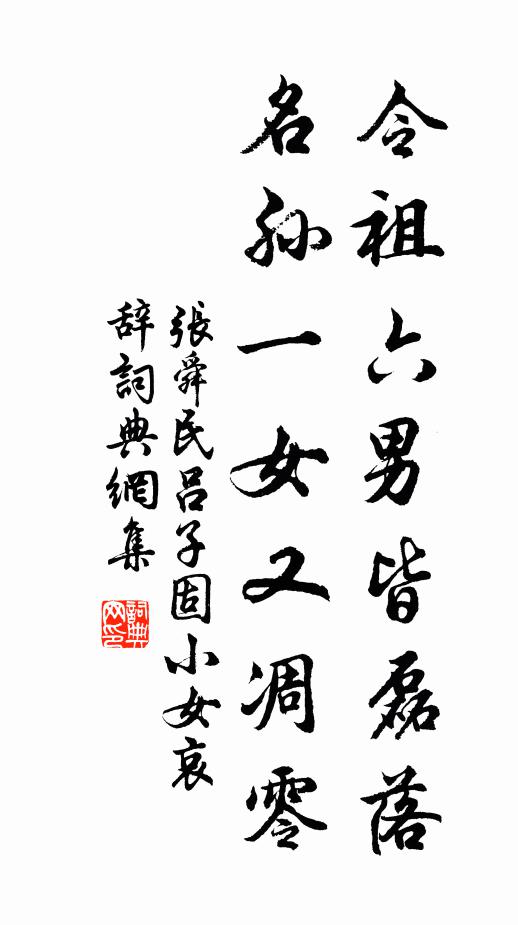 令祖六男皆磊落
名孙一女又凋零
張舜民呂子固小女哀
辞詞典網集
詞典网印